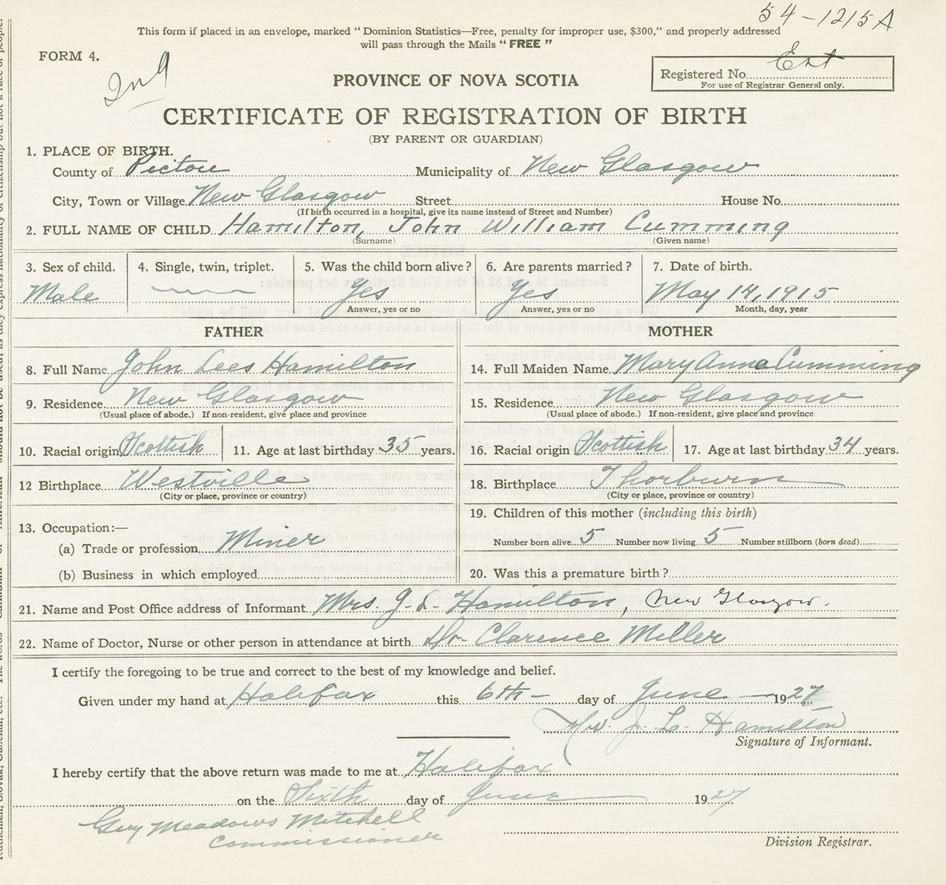 54-1215A
This form if placed in an envelope, marked "Dominion Statistics—Free, penalty for improper use, $300," and properly addressed
will pass through the Mails "FREE"
FORM 4.
PROVINCE OF NOVA SCOTIA
Registered No. Ent
For use of Registrar General only.
CERTIFICATE OF REGISTRATION OF BIRTH
(BY PARENT OR GUARDIAN)
1. PLACE OF BIRTH.
County of Pictou Municipality of New Glasgow
City, Town or Village New Glasgow Street House No.
(If birth occurred in a hospital, give its name instead of Street and Number)
2. FULL NAME OF CHILD Hamilton, John William Cumming
(Surname) (Given name)
3. Sex of child. 4. Single, twin, triplet. 5. Was the child born alive? 6. Are parents married? 7. Date of birth.
Male Yes Yes May 14, 1915
Answer, yes or no Answer, yes or no Month, day, year
FATHER MOTHER
8. Full Name John Lees Hamilton 14. Full Maiden Name Mary Anna Cumming
9. Residence New Glasgow 15. Residence New Glasgow
(Usual place of abode.) If non-resident, give place and province (Usual place of abode.) If non-resident, give place and province
10. Racial origin Scottish 11. Age at last birthday 35 years. 16. Racial origin Scottish 17. Age at last birthday 34 years.
12 Birthplace Westville 18. Birthplace Thorburn
(City or place, province or country) (City or place, province or country)
13. Occupation:— 19. Children of this mother (including this birth)
(a) Trade or profession Miner Number born alive 5 Number now living 5 Number stillborn (born dead)
(b) Business in which employed 20. Was this a premature birth?
21. Name and Post Office address of Informant Mrs. J. L. Hamilton, New Glasgow.
22. Name of Doctor, Nurse or other person in attendance at birth Dr. Clarence Miller
I certify the foregoing to be true and correct to the best of my knowledge and belief.
Given under my hand at Halifax this 6th day of June 1927
Mrs. J. L. Hamilton
Signature of Informant.
I hereby certify that the above return was made to me at Halifax
on the Sixth day of June 1927
Guy Meadows Mitchell
Commissioner
Division Registrar.